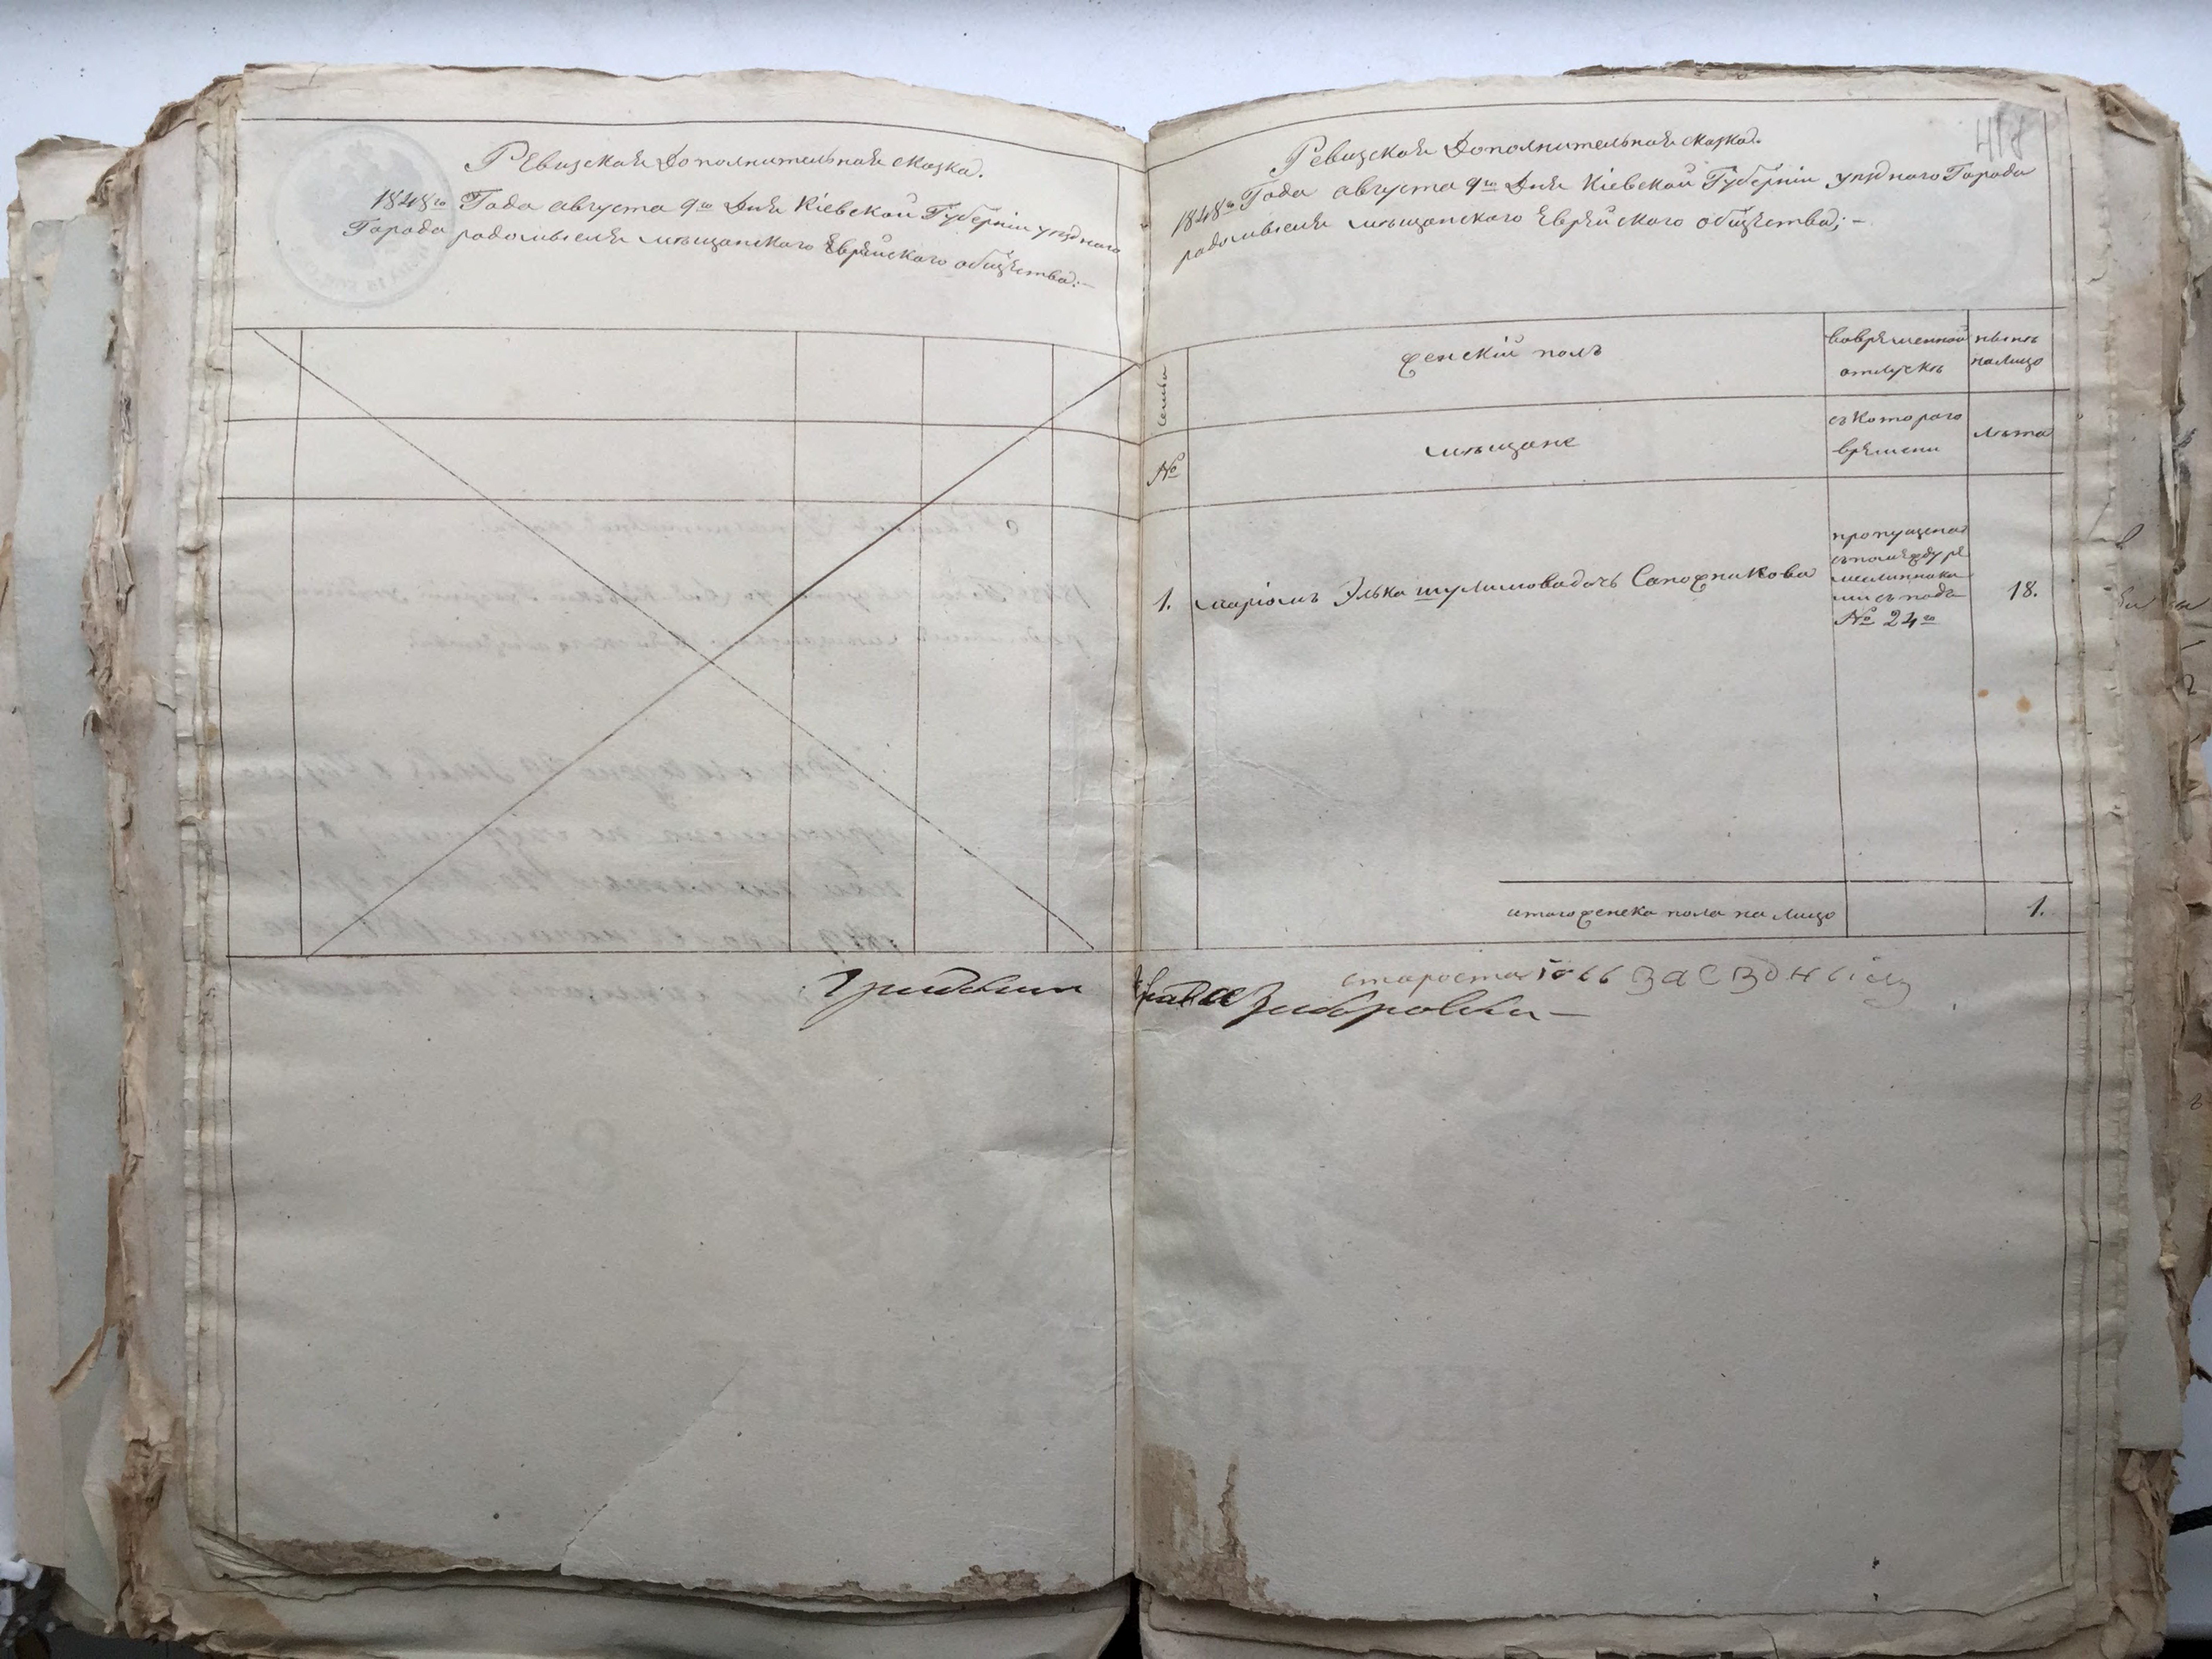 Ревизская Дополнительная сказка.
1848го Года августа 9го Дня Кіевской Губерніи уѣзднаго
Города радомысля мѣщанского Еврейского общества:-
418
Ревизская Дополнительная сказка.
1848го Года августа 9го Дня Кіевской Губерніи уѣзднаго Города
радомысля мѣщанского Еврейского общества;-
№ семьи
женскій полъ
вовременной
отлускѣ
нынѣ
налицо
мѣщане
съ котораго
времени
лѣта
1.
маріомъ Элька шулимова дочь Сапожникова
пропущена
№ 24го
18.
итого женска пола на лицо
1.
староста